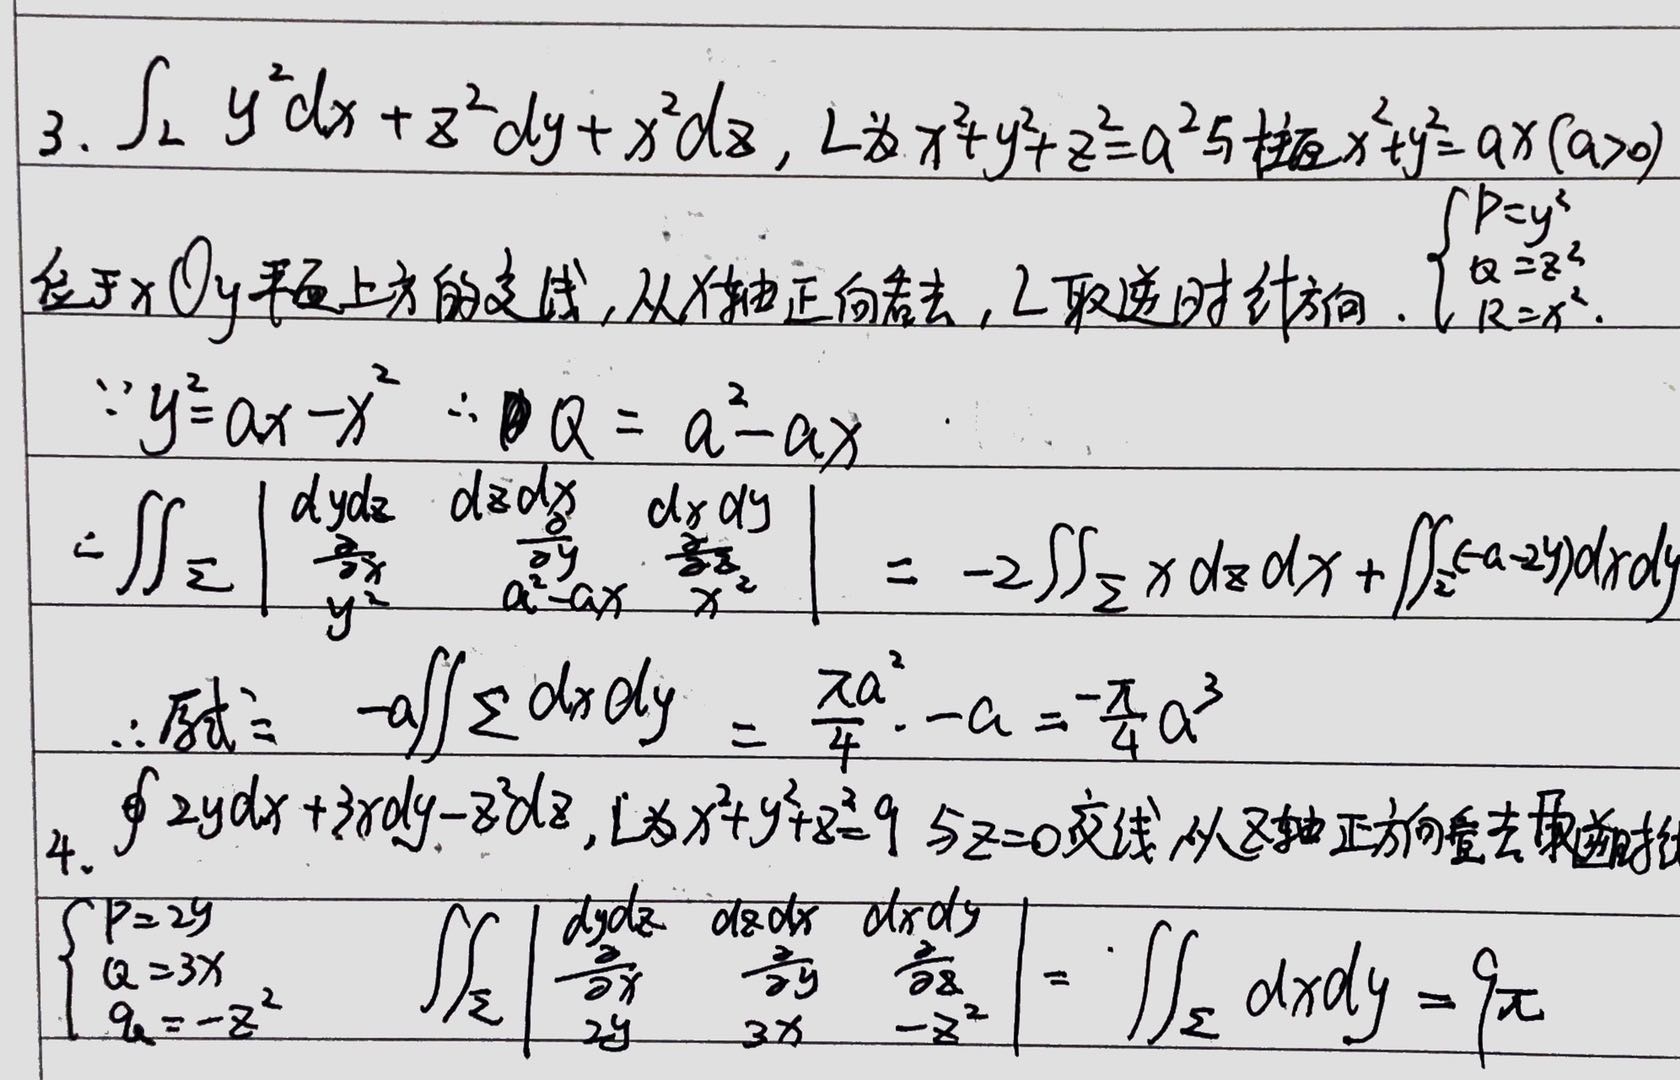 3. ∫L y²dx + z²dy + x²dz, L为 x²+y²+z²=a² 与柱面 x²+y²=ax (a>0)
位于xOy平面上方的交线,从x轴正向看去,L取逆时针方向. { P=y² Q=z² R=x².
∵ y²=ax-x² ∴ Q = a²-ax
= ∬Σ | dydz dzdx dxdy ∂/∂x ∂/∂y ∂/∂z y² a²-ax x² | = -2∬Σ x dzdx + ∬Σ(-a-2y)dxdy
∴原式= -a∬Σ dxdy = πa²/4 · -a = -π/4 a³
4. ∮ 2ydx+3xdy-z²dz, L为x²+y²+z²=9 与z=0交线 从z轴正方向看去取逆时针
{ P=2y Q=3x R=-z² ∬Σ | dydz dzdx dxdy ∂/∂x ∂/∂y ∂/∂z 2y 3x -z² | = ∬Σ dxdy = 9π